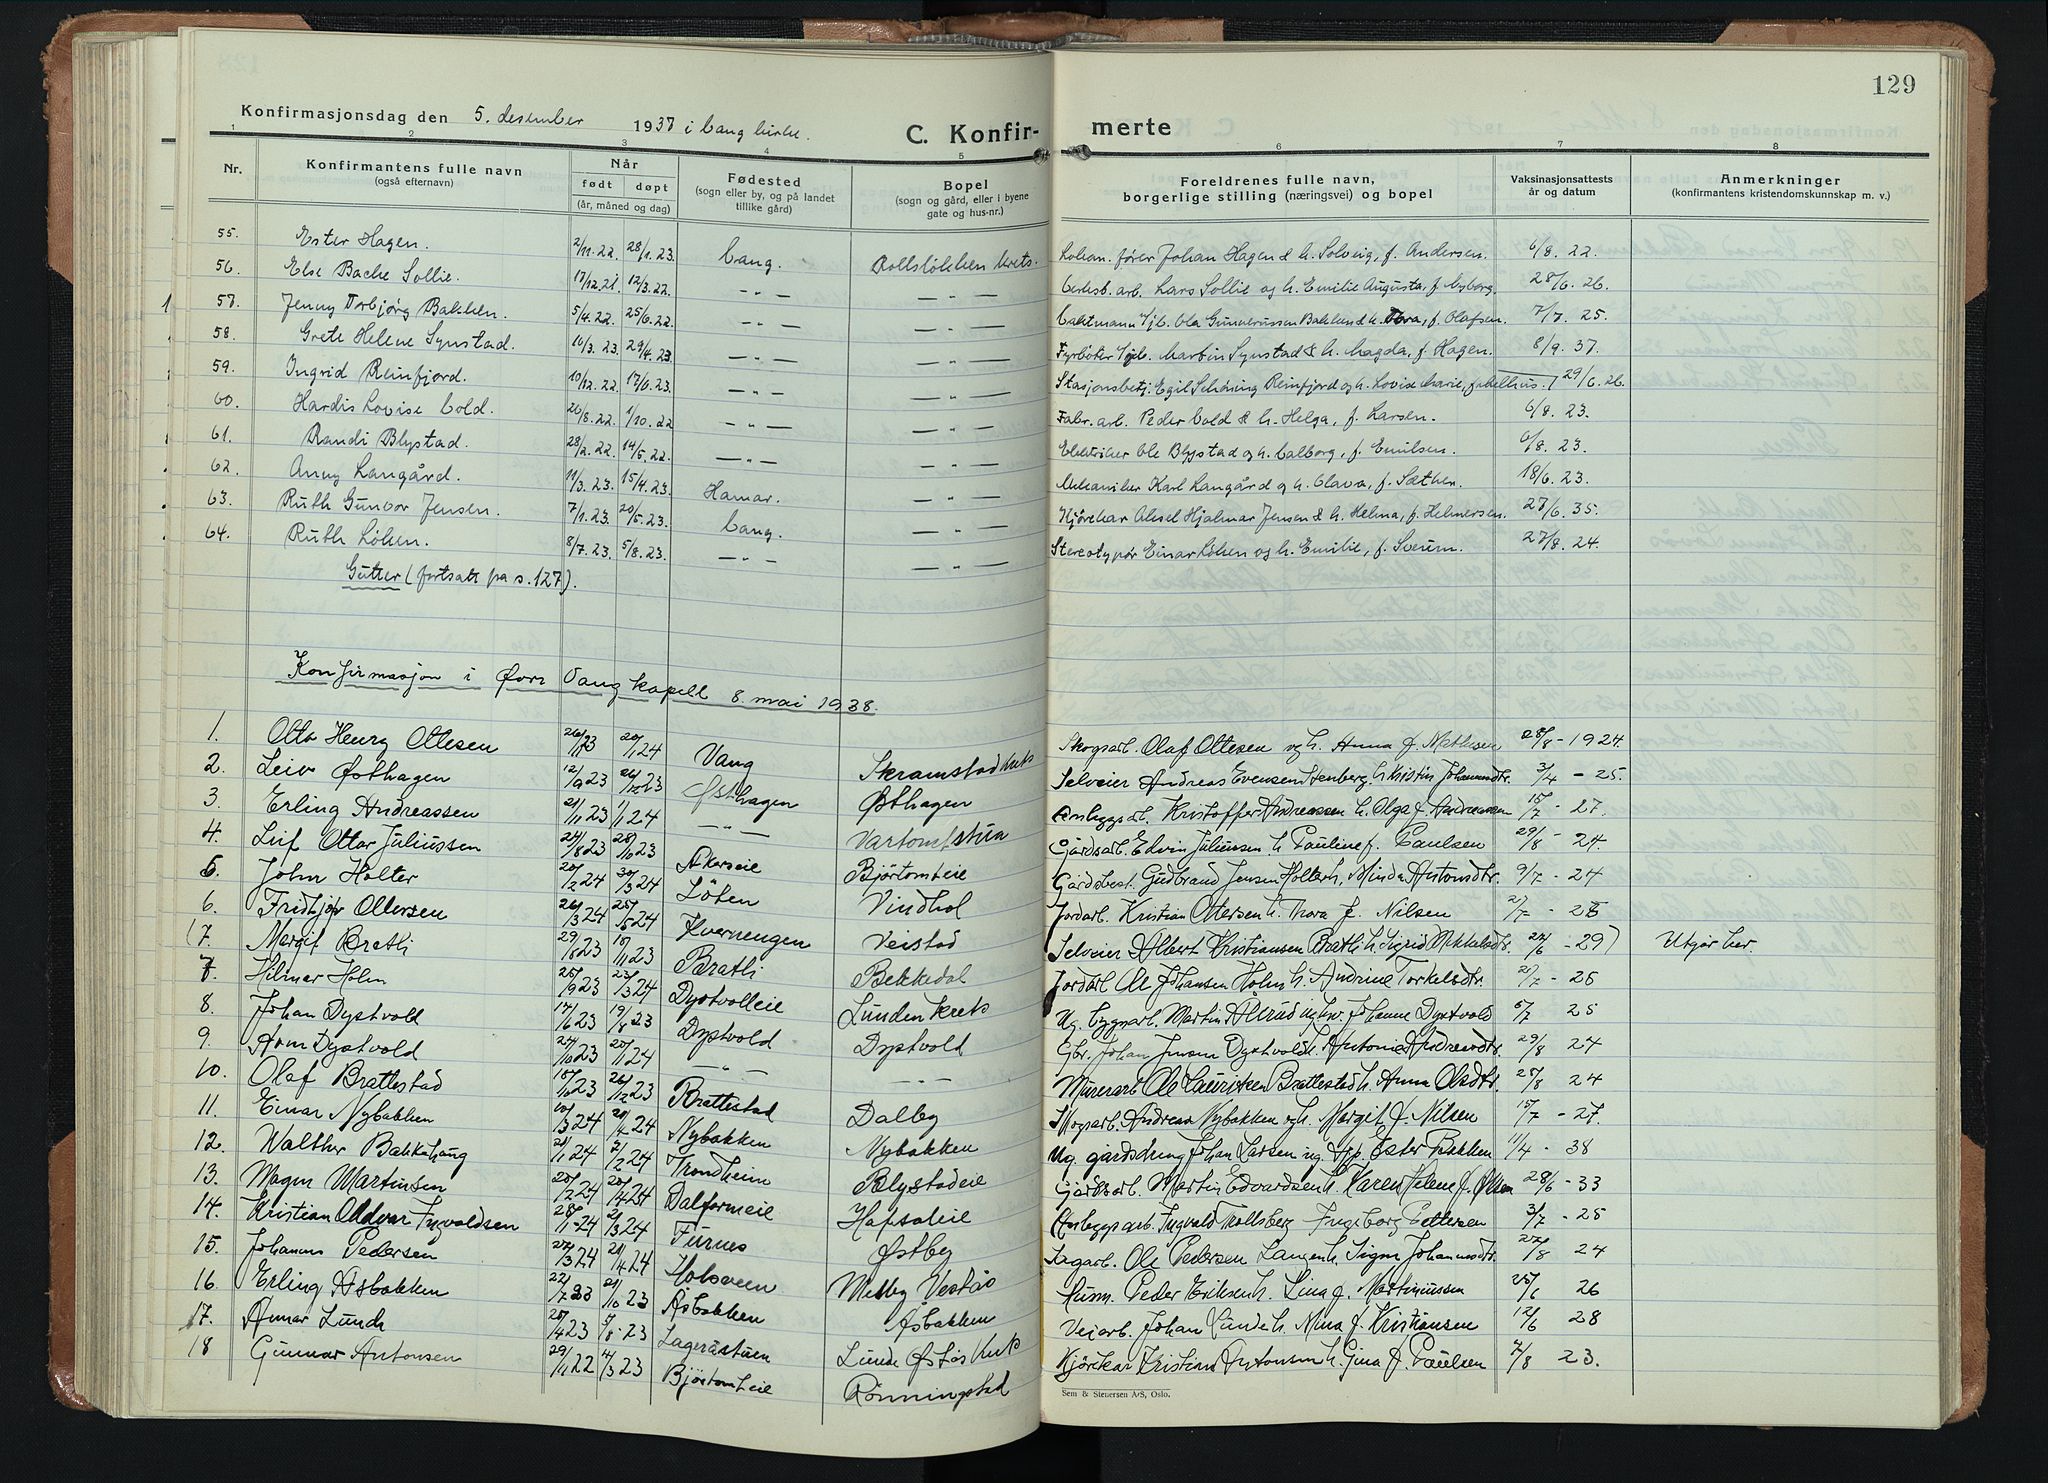 129
Konfirmasjonsdag den 5. desember 1937 i Vang kirke.
C. Konfir-
merte
1 2 3 4 5 6 7 8
Nr. Konfirmantens fulle navn (også efternavn) Når født døpt (år, måned og dag) Fødested (sogn eller by, og på landet tillike gård) Bopel (sogn og gård, eller i byene gate og hus-nr.) Foreldrenes fulle navn, borgerlige stilling (næringsvei) og bopel Vaksinasjonsattests år og datum Anmerkninger (konfirmantens kristendomskunnskap m. v.)
55. Ester Hagen. 2/11.22. 28/1.23. Vang. krets. Lokom. fører Johan Hagen & h. Solveig, f. Andersen. 6/8. 22.
56. Else Bache Sollie. 17/12.21. 12/3.22. — „ — — „ — Verksb. arb. Lars Sollie og h. Emilie Augusta, f. Nyborg. 28/6. 26.
57. Jenny Torbjørg Bakken. 5/4.22. 25/6.22. — „ — — „ — Vaktmann v/jb. Ola Gunnerussen Bakken & h. Thora, f. Olafsen. 7/7. 25.
58. Grete Helene Synstad. 10/3.23. 29/4.23 — „ — — „ — Fyrbøter v/jb. Martin Synstad & h. Magda, f. Hagen. 8/9. 37.
59. Ingrid Reinfjord. 10/12.22. 17/6.23. — „ — — „ — Stasjonsbetj. Egil Schøning Reinfjord og h. Lovise Marie, 29/6. 26.
60. Hardis Lovise Vold. 20/8.22. 1/10.22 — „ — — „ — Fabr. arb. Peder Vold & h. Helga, f. Larsen. 6/8. 23.
61. Randi Blystad. 28/2.22. 14/5.22. — „ — — „ — Elektriker Ole Blystad og h. Valborg, f. Emilsen. 6/8. 23.
62. Anny Langård. 11/3.23. 15/4.23. Hamar. — „ — Mekaniker Karl Langård og h. Olava, f. Sæther. 18/6. 23.
63. Ruth Gunvor Jensen. 7/1.23. 20/5.23. Vang. — „ — Kjørekar Aksel Hjalmar Jensen & h. Helma, f. Helmersen. 27/6. 35.
64. Ruth Løken. 8/7.23. 5/8.23. — „ — — „ — Stereotypør Einar Løken og h. Emilie, f. Sverum. 27/8. 24.
Gutter (fortsatt pa s. 127).
Konfirmasjon i Øvre Vang kapell 8. mai 1938.
1. Otto Henry Ottesen 26/11 23 20/1 24 Vang Skramstad krets Skogsarb. Olaf Ottesen og h. Anna f. Mathisen 28/8 - 1924.
2. Leiv Østhagen 12/9 23 Østhagen Østhagen Selveier Andreas Evensen Stenberg h. Kristin Johannesdtr. 3/4 - 25.
3. Erling Andreassen 21/11 23 1/1 24 — „ — Anleggsarb. Kristoffer Andreassen h. Olga f. Andreassen 15/7 - 27.
4. Leif Ottar Juliussen 24/8 23 28/10 23 Akerseie Gårdsarb. Edvin Juliussen h. Pauline f. Paulsen 29/8 - 24.
5. John Holter 20/2 24 30/3 24 Löten Björtomteie Gårdsbest. Gudbrand Jensen Holter h. Minda Antonsdtr. 9/7 - 24
6. Fridtjov Ottersen 26/3 24 25/5 24 Kvernengen Vindhol Jordarb. Kristian Ottersen h. Thora f. Nilsen
(7. Margit Bratli 29/8 23 Bratli Veistad Selveier Albert Kristiansen Bratli h. Sigrid Mikkelsdtr. - 29) Utgår her.
7. Hilmar Holm 25/9 23 23/3 24 Dystvolleie Bekkedal Jordarb. Ole Johansen Holm h. Andrine Torkelsdtr. - 25
8. Johan Dystvold 14/6 23 19/8 23 Dystvold Lunden krets Ug. byggnarb. Martin Johanne Dystvold 5/7 25
9. Arne Dystvold 24/10 23 20/1 24 — „ — Dystvold Gbr. Johan Jensen Dystvold h. Antonie Andreasdtr. 29/8 24
10. Olaf Brattestad 18/10 23 26/12 23 Brattestad — „ — Murerarb. Ole Lauritsen Brattestad h. Anna Olsdtr. 28/8 24
11. Einar Nybakken 10/3 24 Nybakken Dalby Skogsarb. Andreas Nybakken og h. Margit f. Nilsen 15/7 - 27.
12. Walther Bakkehaug 21/1 24 7/2 24 Trondheim Nybakken Ug. gårdsdreng Johan Larsen ug. Ester Bakken 11/4 - 38
13. Magne Martinsen 20/2 24 20/4 24 Blystadeie Gårdsarb. Martin Edvardsen h. Karen Helene f. Olsen 28/6 - 33
14. Kristian Oddvar Ingvaldsen 28/1 24 2/3 24 Furnes Anleggsarb. Ingvald Ingeborg Pettersen 3/7 - 25
15. Johannes Pedersen 27/3 24 21/4 24 Østby Sagarb. Ole Pedersen Langen h. Signe Johannesdtr. 27/8 24
16. Erling Åsbakken 22/7 23 21/10 23 Åsbakken Husm. Peder Eriksen h. Lina f. Martinussen 25/6 26
17. Annar Lunde 25/4 23 5/8 23 Lageråstuen Åsbakken Veiarb. Johan Lunde h. Nina f. Kristiansen 12/6 28
18 Gunnar Antonsen 29/11 22 4/3 23 Björtomteie Lunde Østås krets Kjørekar Kristian Antonsen h. Gina f. Paulsen 7/8 23.
Rönningstad
Sem & Stenersen A/S, Oslo.